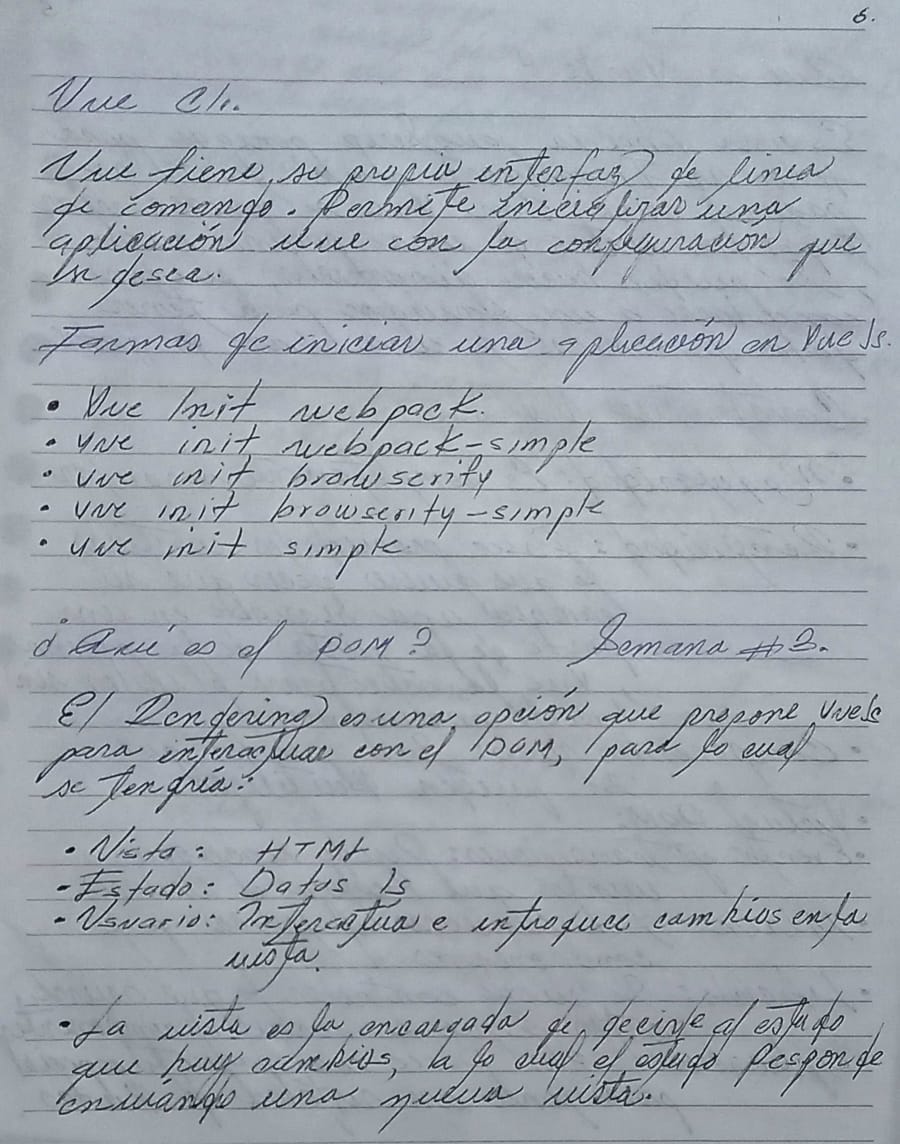 6.
Vue Cli.
Vue tiene su propia interfaz de linea
de comando. Permite inicializar una
aplicación vue con la configuración que
se desea.
Formas de iniciar una aplicación en Vue Js.
• Vue Init webpack.
• vue init webpack-simple
• vue init browserity
• vue init browserity-simple
• vue init simple.
¿Qué es el DOM? Semana #3.
El Rendering es una opción que propone VueJs
para interactuar con el DOM, para lo cual
se tendría:
• Vista: HTML
• Estado: Datos Js
• Usuario: Interactua e introduce cambios en la
vista.
• La vista es la encargada de decirle al estado
que hay cambios, a lo cual el estado Responde
enviándo una nueva vista.